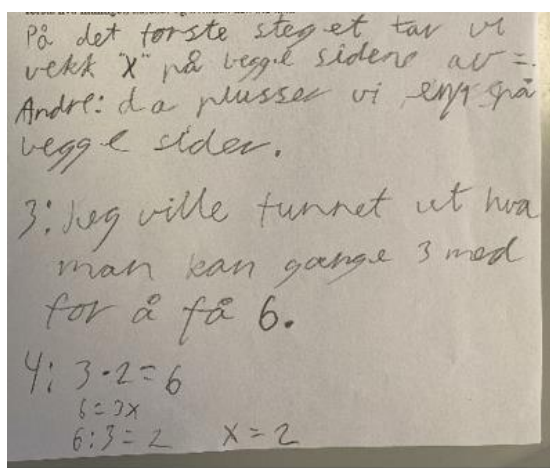 På det første steget tar vi
vekk "X" på begge sidene av =.
Andre: da plusser vi en på
begge sider.
3: Jeg ville funnet ut hva
man kan gange 3 med
for å få 6.
4: 3·2=6
6=3x
6:3=2 X=2